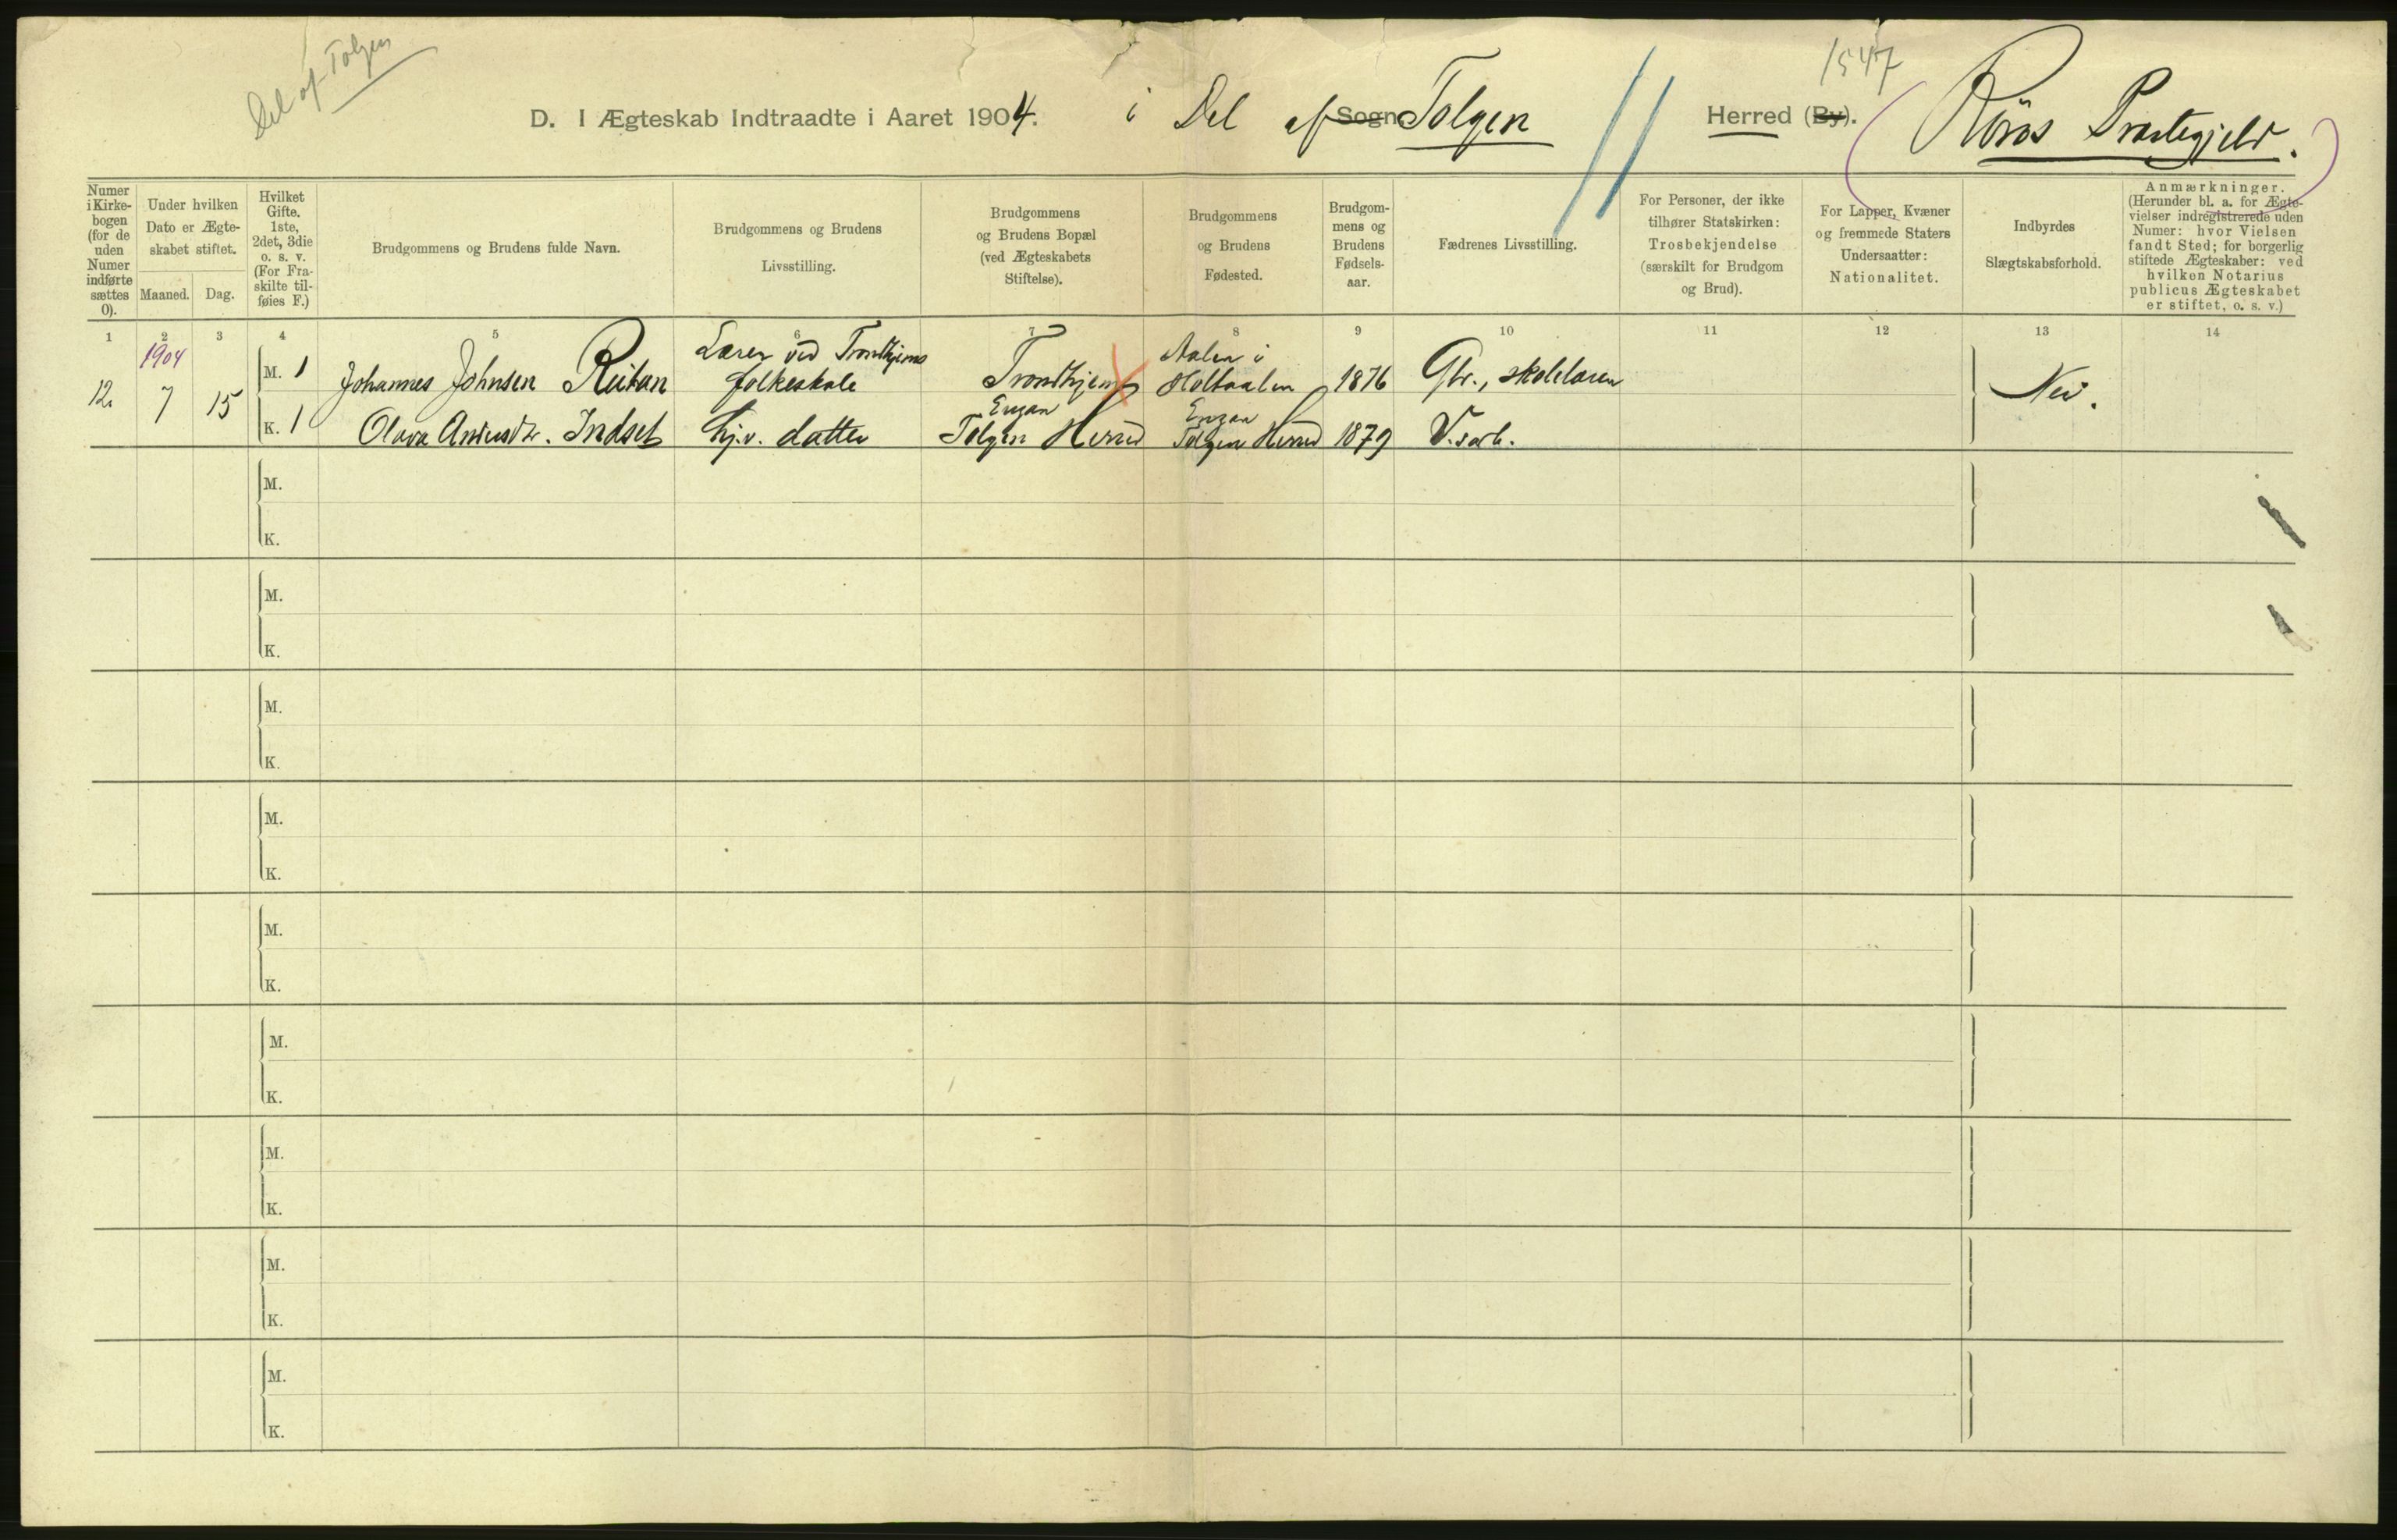 Del af Tolgen
1547
D. I Ægteskab Indtraadte i Aaret 1904. i Del af Sogn, Tolgen Herred (By). Röros Præstegjeld.
Numer i Kirke-bogen (for de uden Numer indførte sættes 0).
Under hvilken Dato er Ægte-skabet stiftet.
Maaned. Dag.
Hvilket Gifte. 1ste, 2det, 3die o. s. v. (For Fra-skilte til-føies F.)
Brudgommens og Brudens fulde Navn.
Brudgommens og Brudens Livsstilling.
Brudgommens og Brudens Bopæl (ved Ægteskabets Stiftelse).
Brudgommens og Brudens Fødested.
Brudgom-mens og Brudens Fødsels-aar.
Fædrenes Livsstilling.
For Personer, der ikke tilhører Statskirken: Trosbekjendelse (særskilt for Brudgom og Brud).
For Lapper, Kvæner og fremmede Staters Undersaatter: Nationalitet.
Indbyrdes Slægtskabsforhold.
Anmærkninger. (Herunder bl. a. for Ægte-vielser indregistrerede uden Numer: hvor Vielsen fandt Sted; for borgerlig stiftede Ægteskaber: ved hvilken Notarius publicus Ægteskabet er stiftet, o. s. v.)
1 2 3 4 5 6 7 8 9 10 11 12 13 14
1904
12. 7 15
M. 1 Johannes Johnsen Reitan Lærer ved Trondhjems folkeskole Trondhjem Aalen i Holtaalen 1876 Gbr., skolelærer Nei.
K. 1 Olava Andersdtr. Indset hj.v. datter Engan Tolgen Herred Engan Tolgen Herred 1879 V.arb.
M.
K.
M.
K.
M.
K.
M.
K.
M.
K.
M.
K.
M.
K.
M.
K.
M.
K.